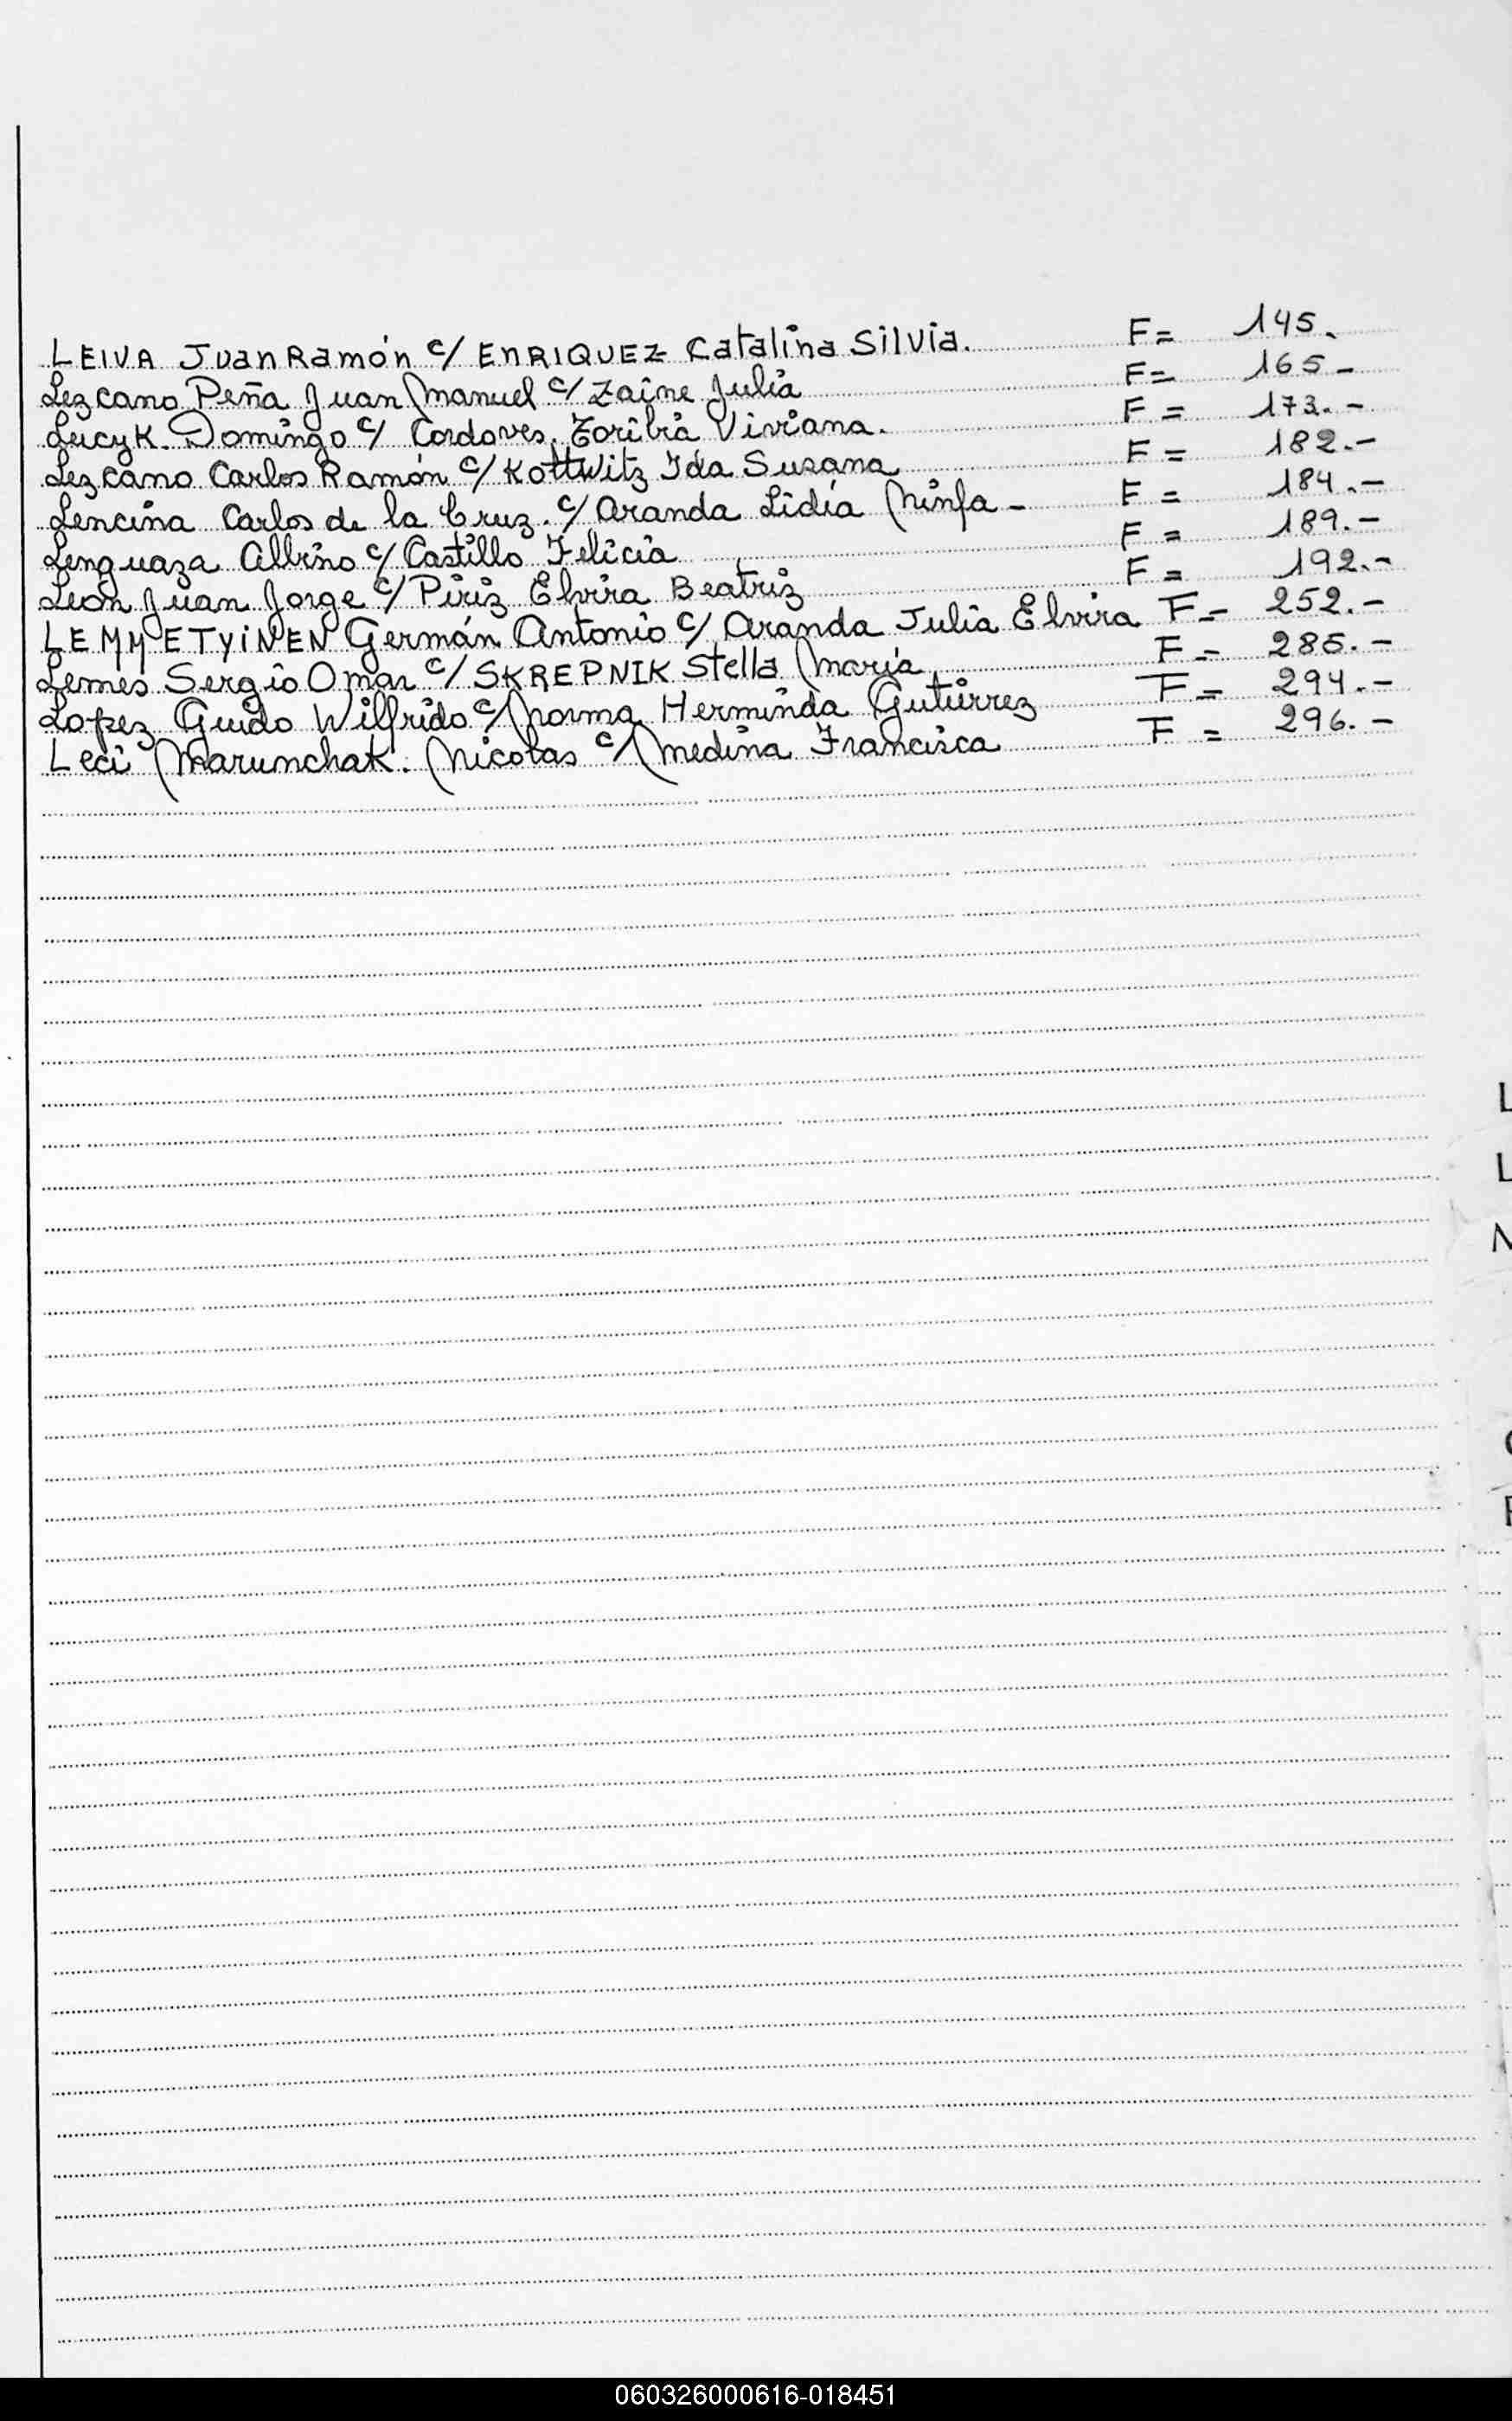 LEIVA Juan Ramón c/ ENRIQUEZ Catalina Silvia. F= 145.
Lezcano Peña Juan Manuel c/ Zaine Julia F= 165-
Lucyk Domingo c/ Cordoves Toribia Viviana. F= 173.-
Lezcano Carlos Ramón c/ Kottwitz Ida Susana F= 182.-
Lencina Carlos de la Cruz. c/ Aranda Lidia Ninfa - F= 184.-
Lenguaza Albino c/ Castillo Felicia F= 189.-
Leon Juan Jorge c/ Piriz Elvira Beatriz F= 192.-
LEMMETYiNEN Germán Antonio c/ Aranda Julia Elvira F= 252.-
Lemes Sergio Omar c/ SKREPNIK Stella María F= 285.-
Lopez Guido Wilfrido c/ Norma Herminda Gutiérrez F= 294.-
Leci Marunchak. Nicolas c/ Medina Francisca F= 296.-
L
L
N
060326000616-018451